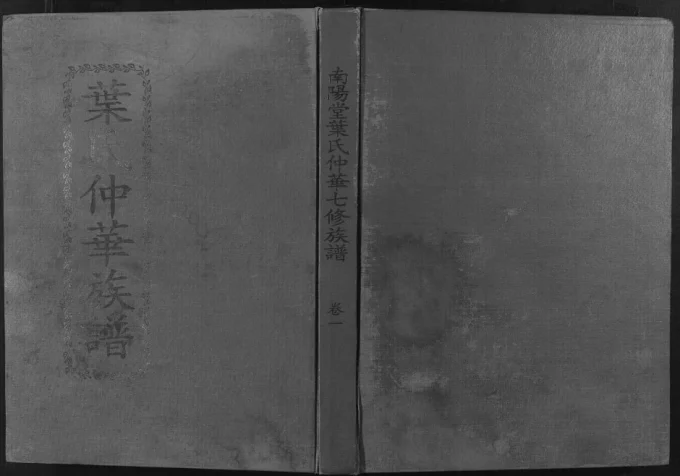 葉氏仲華族譜
南陽堂葉氏仲華七修族譜
卷一